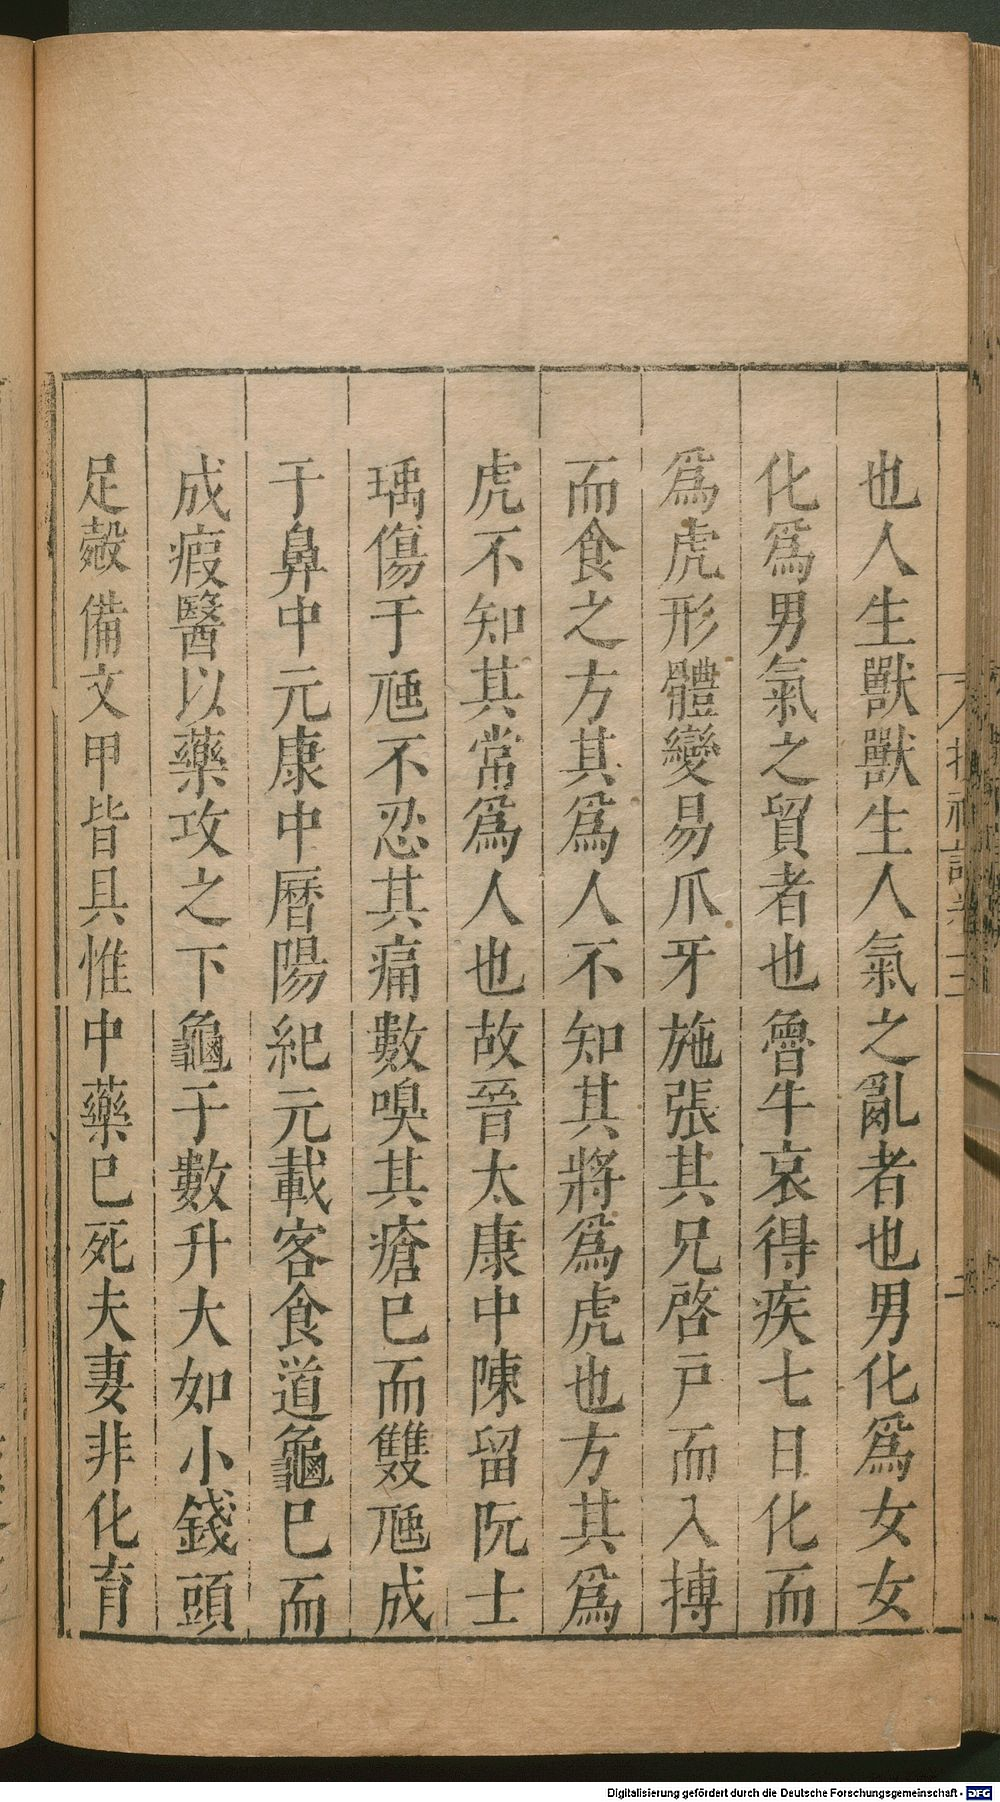 也人生獸獸生人氣之亂者也男化爲女女
化爲男氣之貿者也魯牛哀得疾七日化而
爲虎形體變易爪牙施張其兄啓戶而入搏
而食之方其爲人不知其將爲虎也方其爲
虎不知其常爲人也故晉太康中陳留阮士
瑀傷于虺不忍其痛數嗅其瘡已而雙虺成
于鼻中元康中曆陽紀元載客食道龜已而
成瘕醫以藥攻之下龜子數升大如小錢頭
足縠備文甲皆具惟中藥已死夫妻非化育
Digitalisierung gefördert durch die Deutsche Forschungsgemeinschaft - DFG